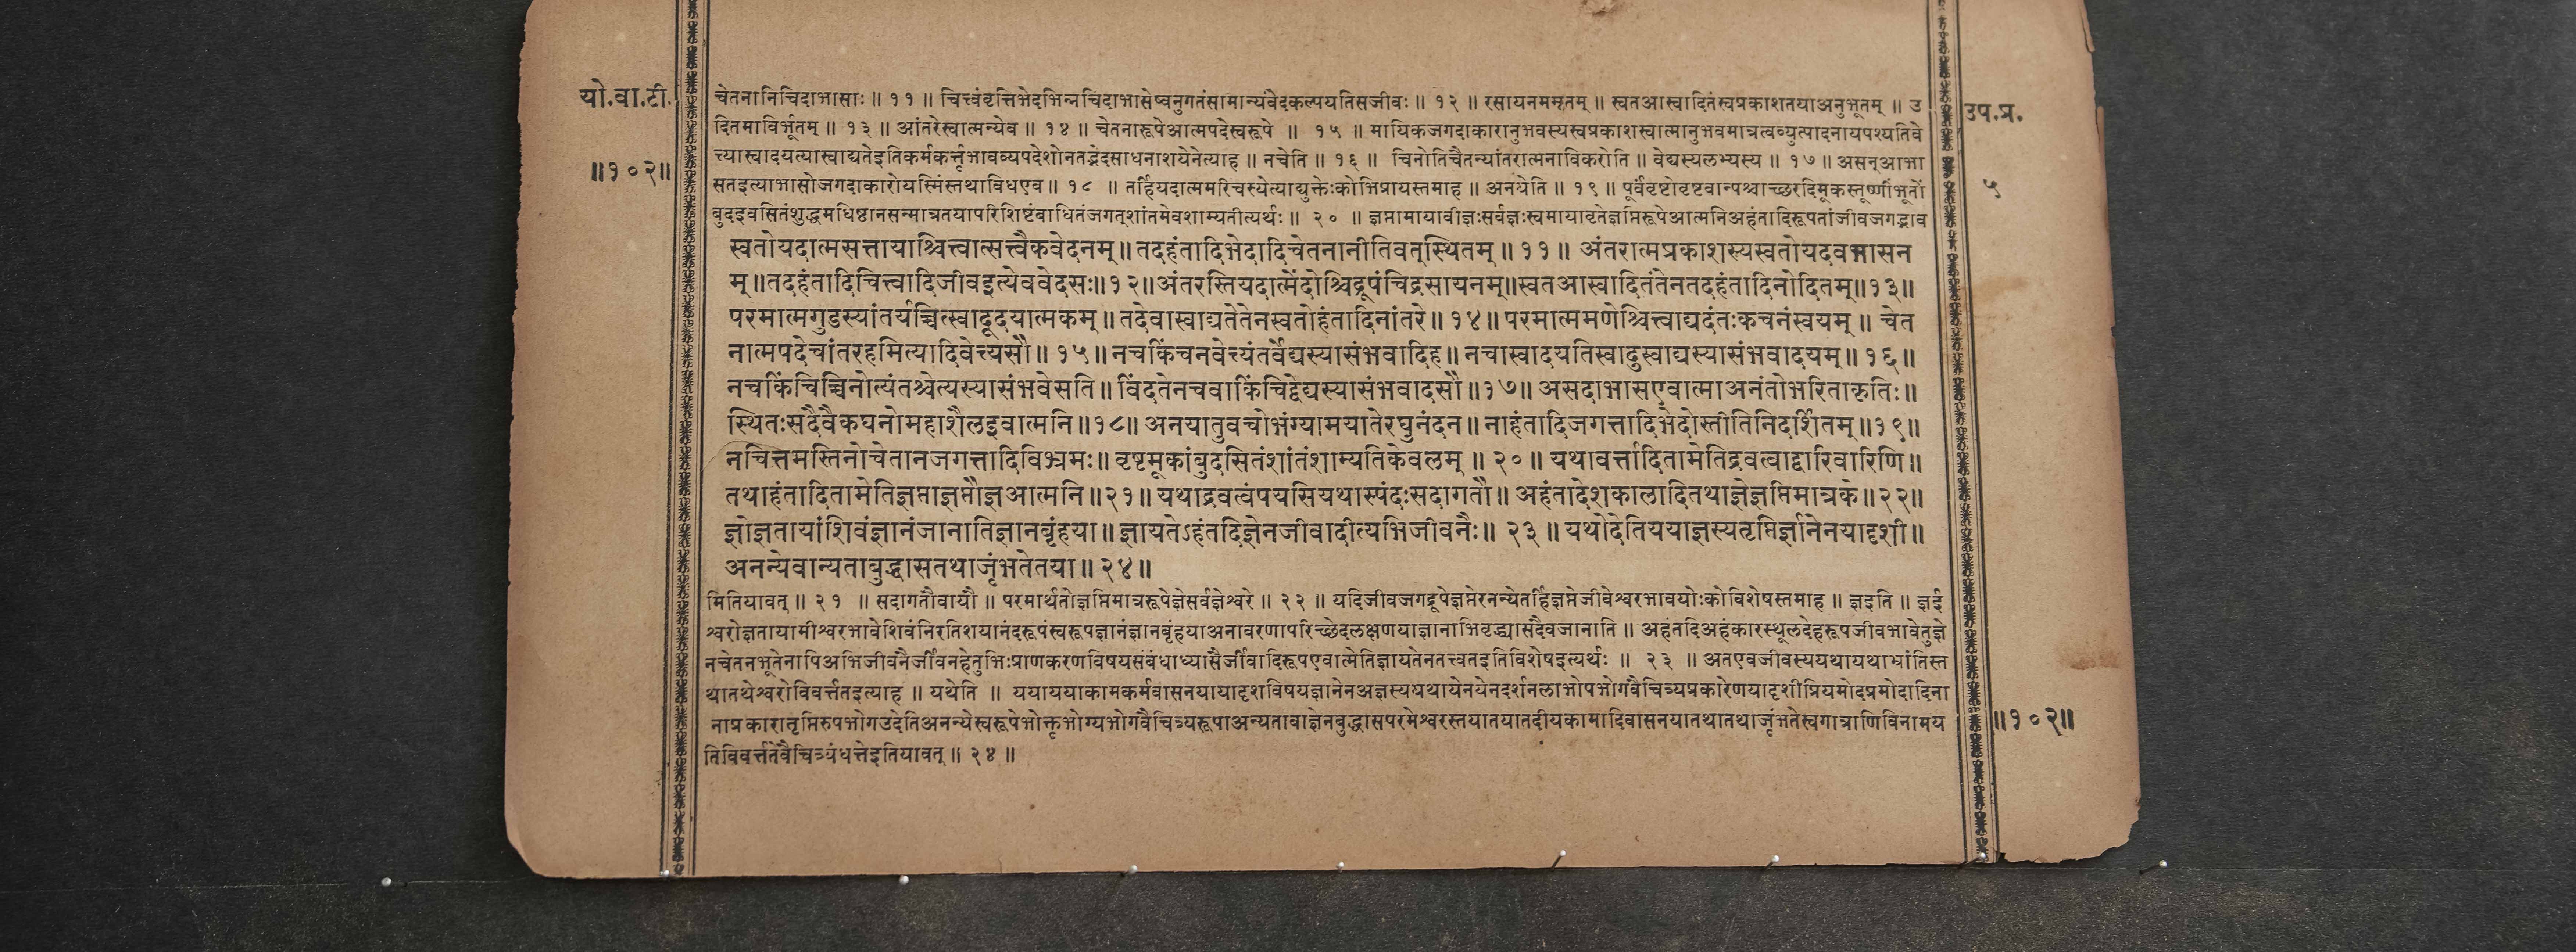 यो.वा.टी.
॥१०२॥
चेतनानिचिदाभासाः ॥ ११ ॥ चित्त्वंवृत्तिभेदभिन्नचिदाभासेष्वनुगतंसामान्यंवेदकल्पयतिसजीवः ॥ १२ ॥ रसायनममृतम् ॥ स्वतआस्वादितंस्वप्रकाशतयाअनुभूतम् ॥ उ
दितमाविर्भूतम् ॥ १३ ॥ आंतरेस्वात्मन्येव ॥ १४ ॥ चेतनारूपेआत्मपदेस्वरूपे ॥ १५ ॥ मायिकजगदाकारानुभवस्यस्वप्रकाशस्वात्मानुभवमात्रत्वव्युत्पादनायपश्यतिवे
त्त्यास्वादयत्यास्वाद्यतेइतिकर्मकर्त्तृभावव्यपदेशोनतद्भेदसाधनाशयेनेत्याह ॥ नचेति ॥ १६ ॥ चिनोतिचैतन्यांतरात्मनाविकरोति ॥ वेद्यस्यलभ्यस्य ॥ १७ ॥ असन्आभा
सतइत्याभासोजगदाकारोयस्मिंस्तथाविधएव ॥ १८ ॥ तर्हियदात्ममरिचस्येत्याद्युक्तेःकोभिप्रायस्तमाह ॥ अनयेति ॥ १९ ॥ पूर्वंवृष्टोवृष्टवान्पश्चाच्छरदिमूकस्तूष्णींभूतों
बुदइवसितंशुद्धमधिष्ठानसन्मात्रतयापरिशिष्टंबाधितंजगत्शांतमेवशाम्यतीत्यर्थः ॥ २० ॥ ज्ञप्तामायावीज्ञःसर्वज्ञःस्वमायावृतेज्ञप्तिरूपेआत्मनिअहंतादिरूपतांजीवजगद्भाव
स्वतोयदात्मसत्तायाश्चित्त्वात्सत्त्वैकवेदनम् ॥ तदहंतादिभेदादिचेतनानीतिवत्स्थितम् ॥ ११ ॥ अंतरात्मप्रकाशस्यस्वतोयदवभासन
म् ॥ तदहंतादिचित्त्वादिजीवइत्येववेदसः ॥ १२ ॥ अंतरस्तियदात्मेंदोश्चिद्रूपंचिद्रसायनम् ॥ स्वतआस्वादितंतेनतदहंतादिनोदितम् ॥ १३ ॥
परमात्मगुडस्यांतर्यच्चित्स्वादूदयात्मकम् ॥ तदेवास्वाद्यतेतेनस्वतोहंतादिनांतरे ॥ १४ ॥ परमात्ममणेश्चित्त्वाद्यदंतःकचनंस्वयम् ॥ चेत
नात्मपदेचांतरहमित्यादिवेत्त्यसौ ॥ १५ ॥ नचकिंचनवेत्त्यंतर्वेद्यस्यासंभवादिह ॥ नचास्वादयतिस्वादुस्वाद्यस्यासंभवादयम् ॥ १६ ॥
नचकिंचिच्चिनोत्यंतश्चेत्यस्यासंभवेसति ॥ विंदतेनचवाकिंचिद्वेद्यस्यासंभवादसौ ॥ १७ ॥ असदाभासएवात्माअनंतोभरिताकृतिः ॥
स्थितःसदैवैकघनोमहाशैलइवात्मनि ॥ १८ ॥ अनयातुवचोभंग्यामयातेरघुनंदन ॥ नाहंतादिजगत्तादिभेदोस्तीतिनिदर्शितम् ॥ १९ ॥
नचित्तमस्तिनोचेतानजगत्तादिविभ्रमः ॥ वृष्टमूकांबुदसितंशांतंशाम्यतिकेवलम् ॥ २० ॥ यथावर्त्तादितामेतिद्रवत्वाद्वारिवारिणि ॥
तथाहंतादितामेतिज्ञप्ताज्ञप्तौज्ञआत्मनि ॥ २१ ॥ यथाद्रवत्वंपयसियथास्पंदःसदागतौ ॥ अहंतादेशकालादितथाज्ञेज्ञप्तिमात्रके ॥ २२ ॥
ज्ञोज्ञतायांशिवंज्ञानंजानातिज्ञानबृंहया ॥ ज्ञायतेऽहंतदिज्ञेनजीवादीत्यभिजीवनैः ॥ २३ ॥ यथोदेतिययाज्ञस्यतृप्तिर्ज्ञानेनयादृशी ॥
अनन्येवान्यताबुद्धासतथाजृंभतेतया ॥ २४ ॥
मितियावत् ॥ २१ ॥ सदागतौवायौ ॥ परमार्थतोज्ञप्तिमात्ररूपेज्ञेसर्वज्ञेश्वरे ॥ २२ ॥ यदिजीवजगद्रूपेज्ञप्तेरनन्येतर्हिज्ञप्तेर्जीवेश्वरभावयोःकोविशेषस्तमाह ॥ ज्ञइति ॥ ज्ञई
श्वरोज्ञतायामीश्वरभावेशिवंनिरतिशयानंदरूपंस्वरूपज्ञानंज्ञानबृंहयाअनावरणापरिच्छेदलक्षणयाज्ञानाभिवृद्ध्यासदैवजानाति ॥ अहंतदिअहंकारस्थूलदेहरूपजीवभावेतुज्ञे
नचेतनभूतेनापिअभिजीवनैर्जीवनहेतुभिःप्राणकरणविषयसंबंधाध्यासैर्जीवादिरूपएवात्मेतिज्ञायतेनतत्त्वतइतिविशेषइत्यर्थः ॥ २३ ॥ अतएवजीवस्ययथायथाभ्रांतिस्त
थातथेश्वरोविवर्त्ततइत्याह ॥ यथेति ॥ यययाययाकामकर्मवासनयायादृशविषयज्ञानेनअज्ञस्ययथायेनयेनदर्शनलाभोपभोगवैचित्र्यप्रकारेणयादृशीप्रियमोदप्रमोदादिना
नाप्रकारातृप्तिरुपभोगउदेतिअनन्येस्वरूपेभोक्तृभोग्यभोगवैचित्र्यरूपाअन्यतावाज्ञेनबुद्धासपरमेश्वरस्तयातयातदीयकामादिवासनयातथातथाजृंभतेस्वगात्राणिविनामय
तिविवर्त्ततेवैचित्र्यंधत्तेइतियावत् ॥ २४ ॥
उप.प्र.
५
॥१०२॥